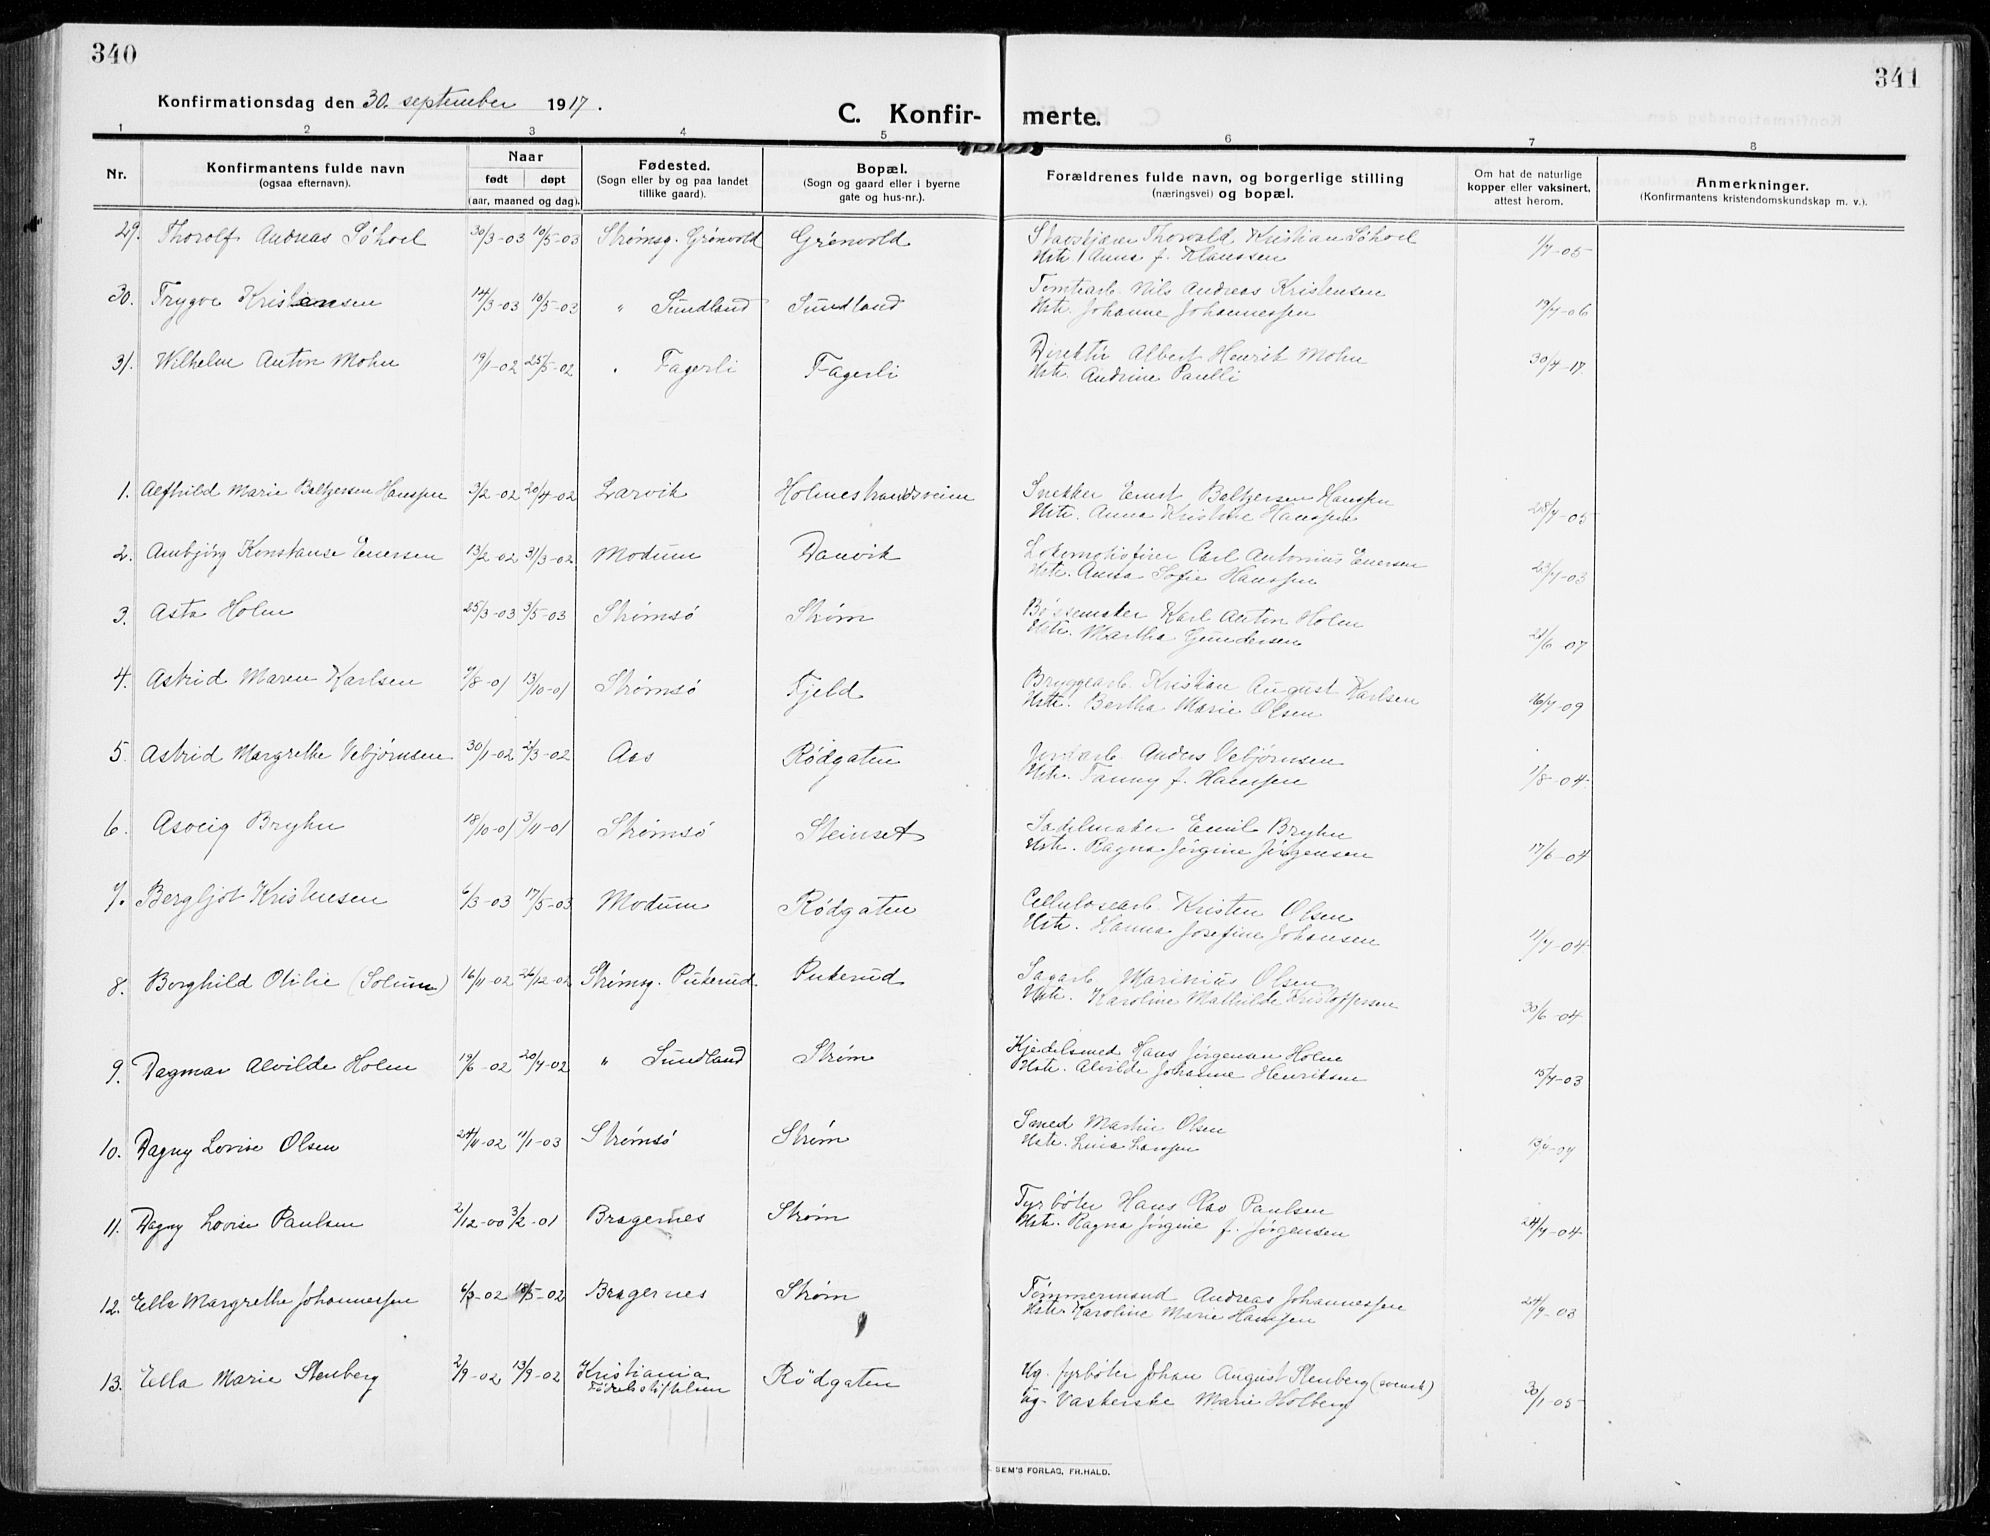 340
341
Konfirmationsdag den 30. september 1917.
C. Konfir- merte.
1 2 3 4 5 6 7 8
Nr.
Konfirmantens fulde navn
(ogsaa efternavn).
Naar
født døpt
(aar, maaned og dag).
Fødested.
(Sogn eller by og paa landet
tillike gaard).
Bopæl.
(Sogn og gaard eller i byerne
gate og hus-nr.).
Forældrenes fulde navn, og borgerlige stilling
(næringsvei) og bopæl.
Om hat de naturlige
kopper eller vaksinert,
attest herom.
Anmerkninger.
(Konfirmantens kristendomskundskap m. v.).
29. Thorolf Andreas Söhoel 30/3-03 10/5-03 Strømsg. Grönvold Grönvold Thorvald Kristian Söhoel 1/7-05
Hstr. Anna f. Klaussen
30. Trygve Kristiansen 14/3-03 10/5-03 " Sundland Sundland Tomtearb. Nils Andreas Kristensen
Hstr. Johanne Johannessen 19/7-06
31. Wilhelm Anton Mohn 19/1-02 25/5-02 " Fagerli Fagerli Direktör Albert Henrik Mohn 30/4-17.
Hstr. Andrine Paulli
1. Alfhild Marie Baltzersen Hanssen 3/2-02 20/4-02 Larvik Holmestrandsveien Snekker Ernst Baltzersen Hanssen
Hstr. Anna Kristine Hanssen 28/7-05
2. Ambjörg Konstanse Enersen 13/2-02 31/3-02 Modum Danvik Lokomotivfører Carl Antonius Enersen
Hstr. Anna Sofie Hanssen 23/7-03
3. Asta Holm 25/3-03 3/5-03 Strømsö Strøm Bøssemaker Karl Anton Holm
Hstr. Martha Gundersen 21/6-07
4. Astrid Maren Karlsen 9/8-01 13/10-01 Strømsö Fjeld Bryggearb. Kristian August Karlsen
Hstr. Bertha Marie Olsen 16/7-09
5. Astrid Margrethe Vebjørnsen 30/1-02 2/3-02 Aas Rødgaten Jernarb. Anders Vebjørnsen
Hstr. Fanny f. Hanssen 1/8-04
6. Asveig Bryhn 18/10-01 3/11-01 Strømsö Steinset Sadelmaker Emil Bryhn
Hstr. Ragna Jörgine Jörgensen 17/6-04
7. Bergljot Kristensen 6/3-03 17/5-03 Modum Rødgaten Cellulosearb. Kristen Olsen
Hstr. Hanna Josefine Johansen 11/7-04
8. Borghild Otilie (Solum) 16/11-02 26/12-02 Strømsg. Pukerud. Pukerud Sagarb. Marinius Olsen
Hstr. Karoline Mathilde Kristoffersen 30/6-04
9. Dagmar Alvilde Holm 19/6-02 20/7-02 " Sundland Strøm Kjedelsmed Hans Jörgensen Holm
Hstr. Alvilde Johanne Henriksen 15/7-03
10. Dagny Lovise Olsen 24/11-02 11/1-03 Strømsö Strøm Smed Martin Olsen
Hstr. Lina Larssen
11. Dagny Lovise Paulsen 2/12-00 3/2-01 Bragernes Strøm Fyrböter Hans Olav Paulsen
Hstr. Ragna Jörgine f. Jörgensen 24/7-04
12. Ella Margrethe Johannessen 6/3-02 18/5-02 Bragernes Strøm Tømmermand Andreas Johannessen
Hstr. Karoline Marie Hanssen 24/7-03
13. Ella Marie Stenberg 2/9-02 13/9-02 Kristiania Rødgaten Ug. fyrböter Johan August Stenberg (svensk)
Fødselsstiftelsen Ug. Vaskerske Marie Holberg 30/1-05
SEM'S FORLAG, FR.HALD.